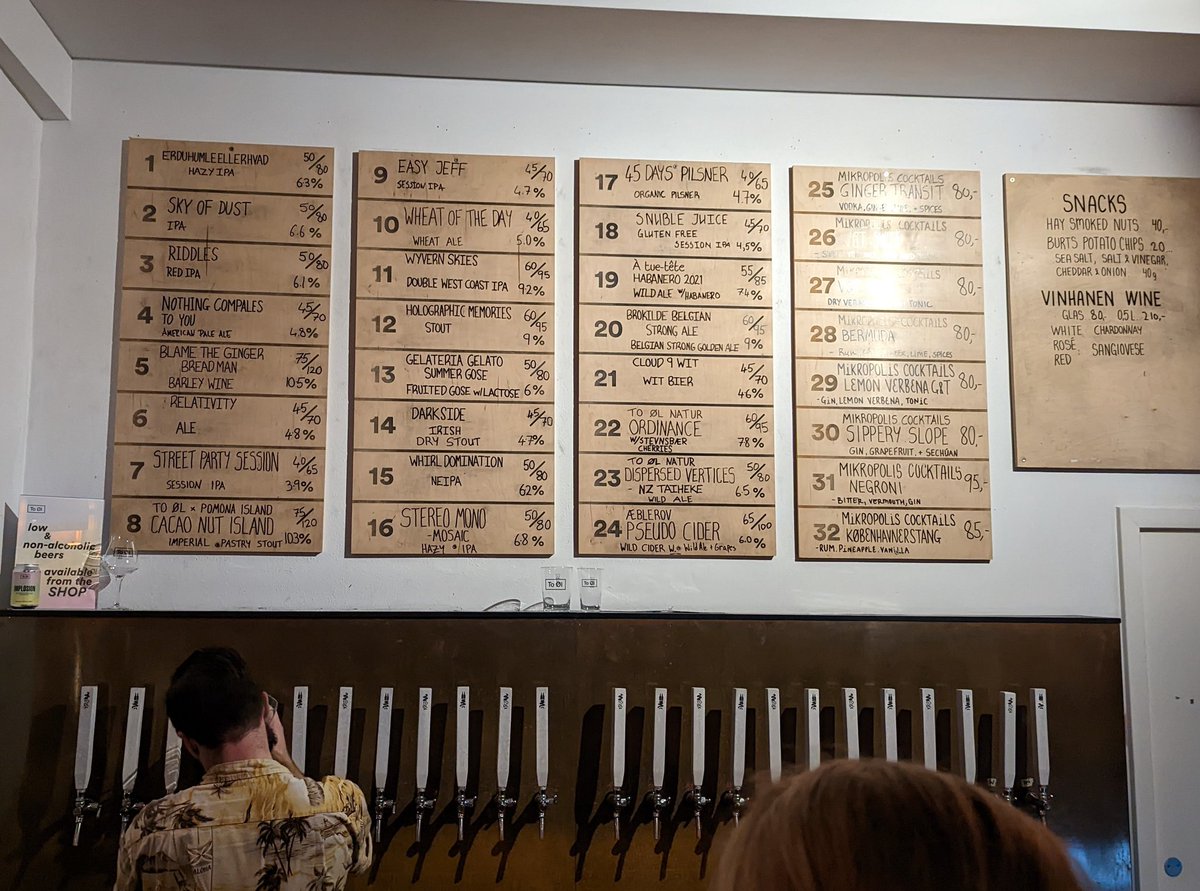 1 ERDUHUMLEELLERHVAD 50/80
HAZY IPA
6.3%
2 SKY OF DUST 50/80
IPA 6.6%
3 RIDDLES 50/80
RED IPA 6.1%
4 NOTHING COMPALES 45/70
TO YOU
AMERICAN PALE ALE 4.8%
5 BLAME THE GINGER 75/120
BREAD MAN
BARLEY WINE 10.5%
6 RELATIVITY 45/70
ALE 4.8%
7 STREET PARTY SESSION 40/65
SESSION IPA 3.9%
8 TO ØL x POMONA ISLAND 75/120
CACAO NUT ISLAND
IMPERIAL PASTRY STOUT 10.3%
9 EASY JEFF 45/70
SESSION IPA 4.7%
10 WHEAT OF THE DAY 40/65
WHEAT ALE 5.0%
11 WYVERN SKIES 60/95
DOUBLE WEST COAST IPA 9.2%
12 HOLOGRAPHIC MEMORIES 60/95
STOUT 9%
13 GELATERIA GELATO 50/80
SUMMER GOSE
FRUITED GOSE W/LACTOSE 6%
14 DARKSIDE 45/70
IRISH
DRY STOUT 4.7%
15 WHIRL DOMINATION 50/80
NEIPA 6.2%
16 STEREO MONO 50/80
-MOSAIC
HAZY IPA 6.8%
17 45 DAYS' PILSNER 40/65
ORGANIC PILSNER 4.7%
18 SNUBLE JUICE 45/70
GLUTEN FREE
SESSION IPA 4,5%
19 À TUE-TÊTE 55/85
HABANERO 2021
WILD ALE W/HABANERO 7.4%
20 BROKILDE BELGIAN 60/95
STRONG ALE
BELGIAN STRONG GOLDEN ALE 9%
21 CLOUD 9 WIT 45/70
WIT BIER 4.6%
22 TO ØL NATUR 60/95
ORDINANCE
W/STEVNSBÆR 7.8%
CHERRIES
23 TO ØL NATUR 50/80
DISPERSED VERTICES
- NZ TAIHEKE 6.5%
WILD ALE
24 ÆBLEROV 65/100
PSEUDO CIDER
WILD CIDER W. Wild Ale + Grapes 6.0%
25 MIKROPOLIS COCKTAILS
GINGER TRANSIT 80,-
VODKA, + SPICES
26 MIKROPOLIS COCKTAILS
80,-
27 COCKTAILS
80,-
TONIC
28 MIKROPOLIS COCKTAILS
BERMUDA 80,-
LIME, SPICES
29 MIKROPOLIS COCKTAILS
LEMON VERBENA G&T 80,-
-GIN, LEMON VERBENA, TONIC
30 MIKROPOLIS COCKTAILS
SIPPERY SLOPE 80,-
GIN, GRAPEFRUIT, + SECHÚAN
31 MIKROPOLIS COCKTAILS
NEGRONI 95,-
- BITTER, VERMOUTH, GIN
32 MIKROPOLIS COCKTAILS
KØBENHAVNERSTANG 85,-
-RUM, PINEAPPLE, VANILLA
SNACKS
HAY SMOKED NUTS 40,-
BURTS POTATO CHIPS 20..
SEA SALT, SALT & VINEGAR,
CHEDDAR & ONION 40g
VINHANEN WINE
GLAS 80,- 0.5L 210,-
WHITE CHARDONNAY
ROSÉ
RED SANGIOVESE
To Øl
low
&
non-alcoholic
beers
available
from the
SHOP
IMPLOSION
To Øl
To Øl
ALOHA